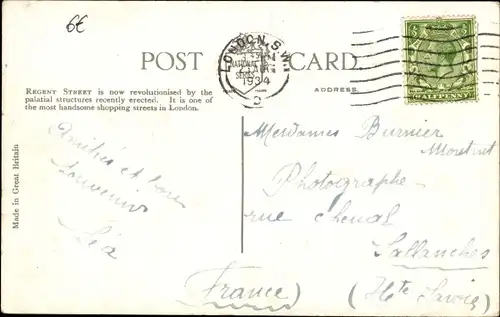 6€
POST CARD.
LONDON. S.W.1
1934
REGENT STREET is now revolutionised by the
palatial structures recently erected. It is one of
the most handsome shopping streets in London.
ADDRESS.
Made in Great Britain
Amitiés et bons
souvenirs
Léa
Mesdames Burnier
Photographe
rue Chenal
Sallanches
(Hte Savoie)
France